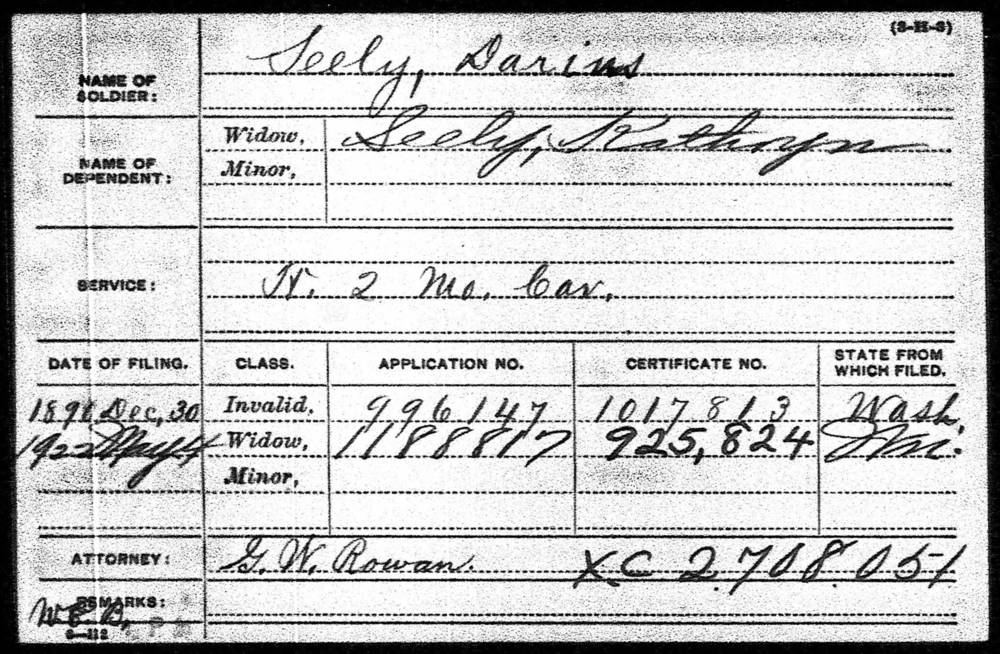 (3-H-3)
NAME OF SOLDIER: Seely, Darius
NAME OF DEPENDENT: Widow, Seely, Kathryn
Minor,
SERVICE: 2 Mo. Cav.
DATE OF FILING. CLASS. APPLICATION NO. CERTIFICATE NO. STATE FROM WHICH FILED.
Dec, 30 Invalid, 996147 1017813 Wash.
1922 May 4 Widow, 1188817 925,824
Minor,
ATTORNEY: G. W. Rowan. XC 2 708 051
REMARKS: